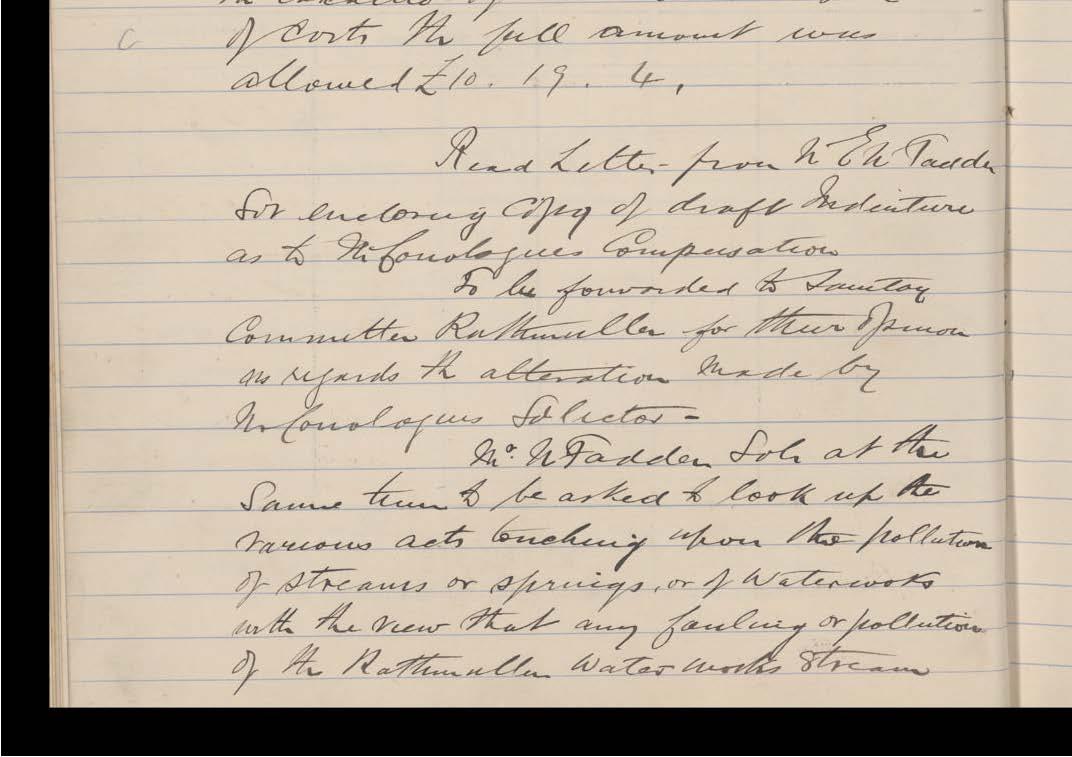 of costs the full amount was
allowed £10. 19. 4.
Read Letter from
Sol enclosing Copy of draft Indenture
as to McConologues Compensation
To be forwarded to Sanitary
Committee Rathmullen for their opinion
as regards the alteration made by
McConologues Solicitor -
Mr. McFadden Solr at the
Same time to be asked to look up the
various acts touching upon the pollution
of streams or springs, or of Waterworks
with the view that any fouling or pollution
of the Rathmullen Water works Stream